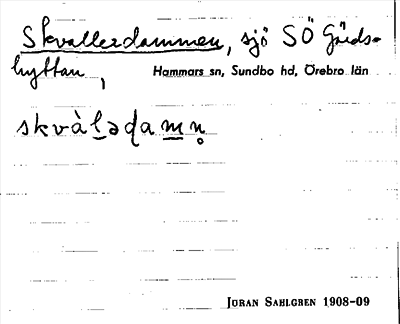 Skvallerdammen, sjö SÖ Gårds-
hyttan,
Hammars sn, Sundbo hd, Örebro län
skvàl̲əɖam̲n̥
JÖRAN SAHLGREN 1908-09